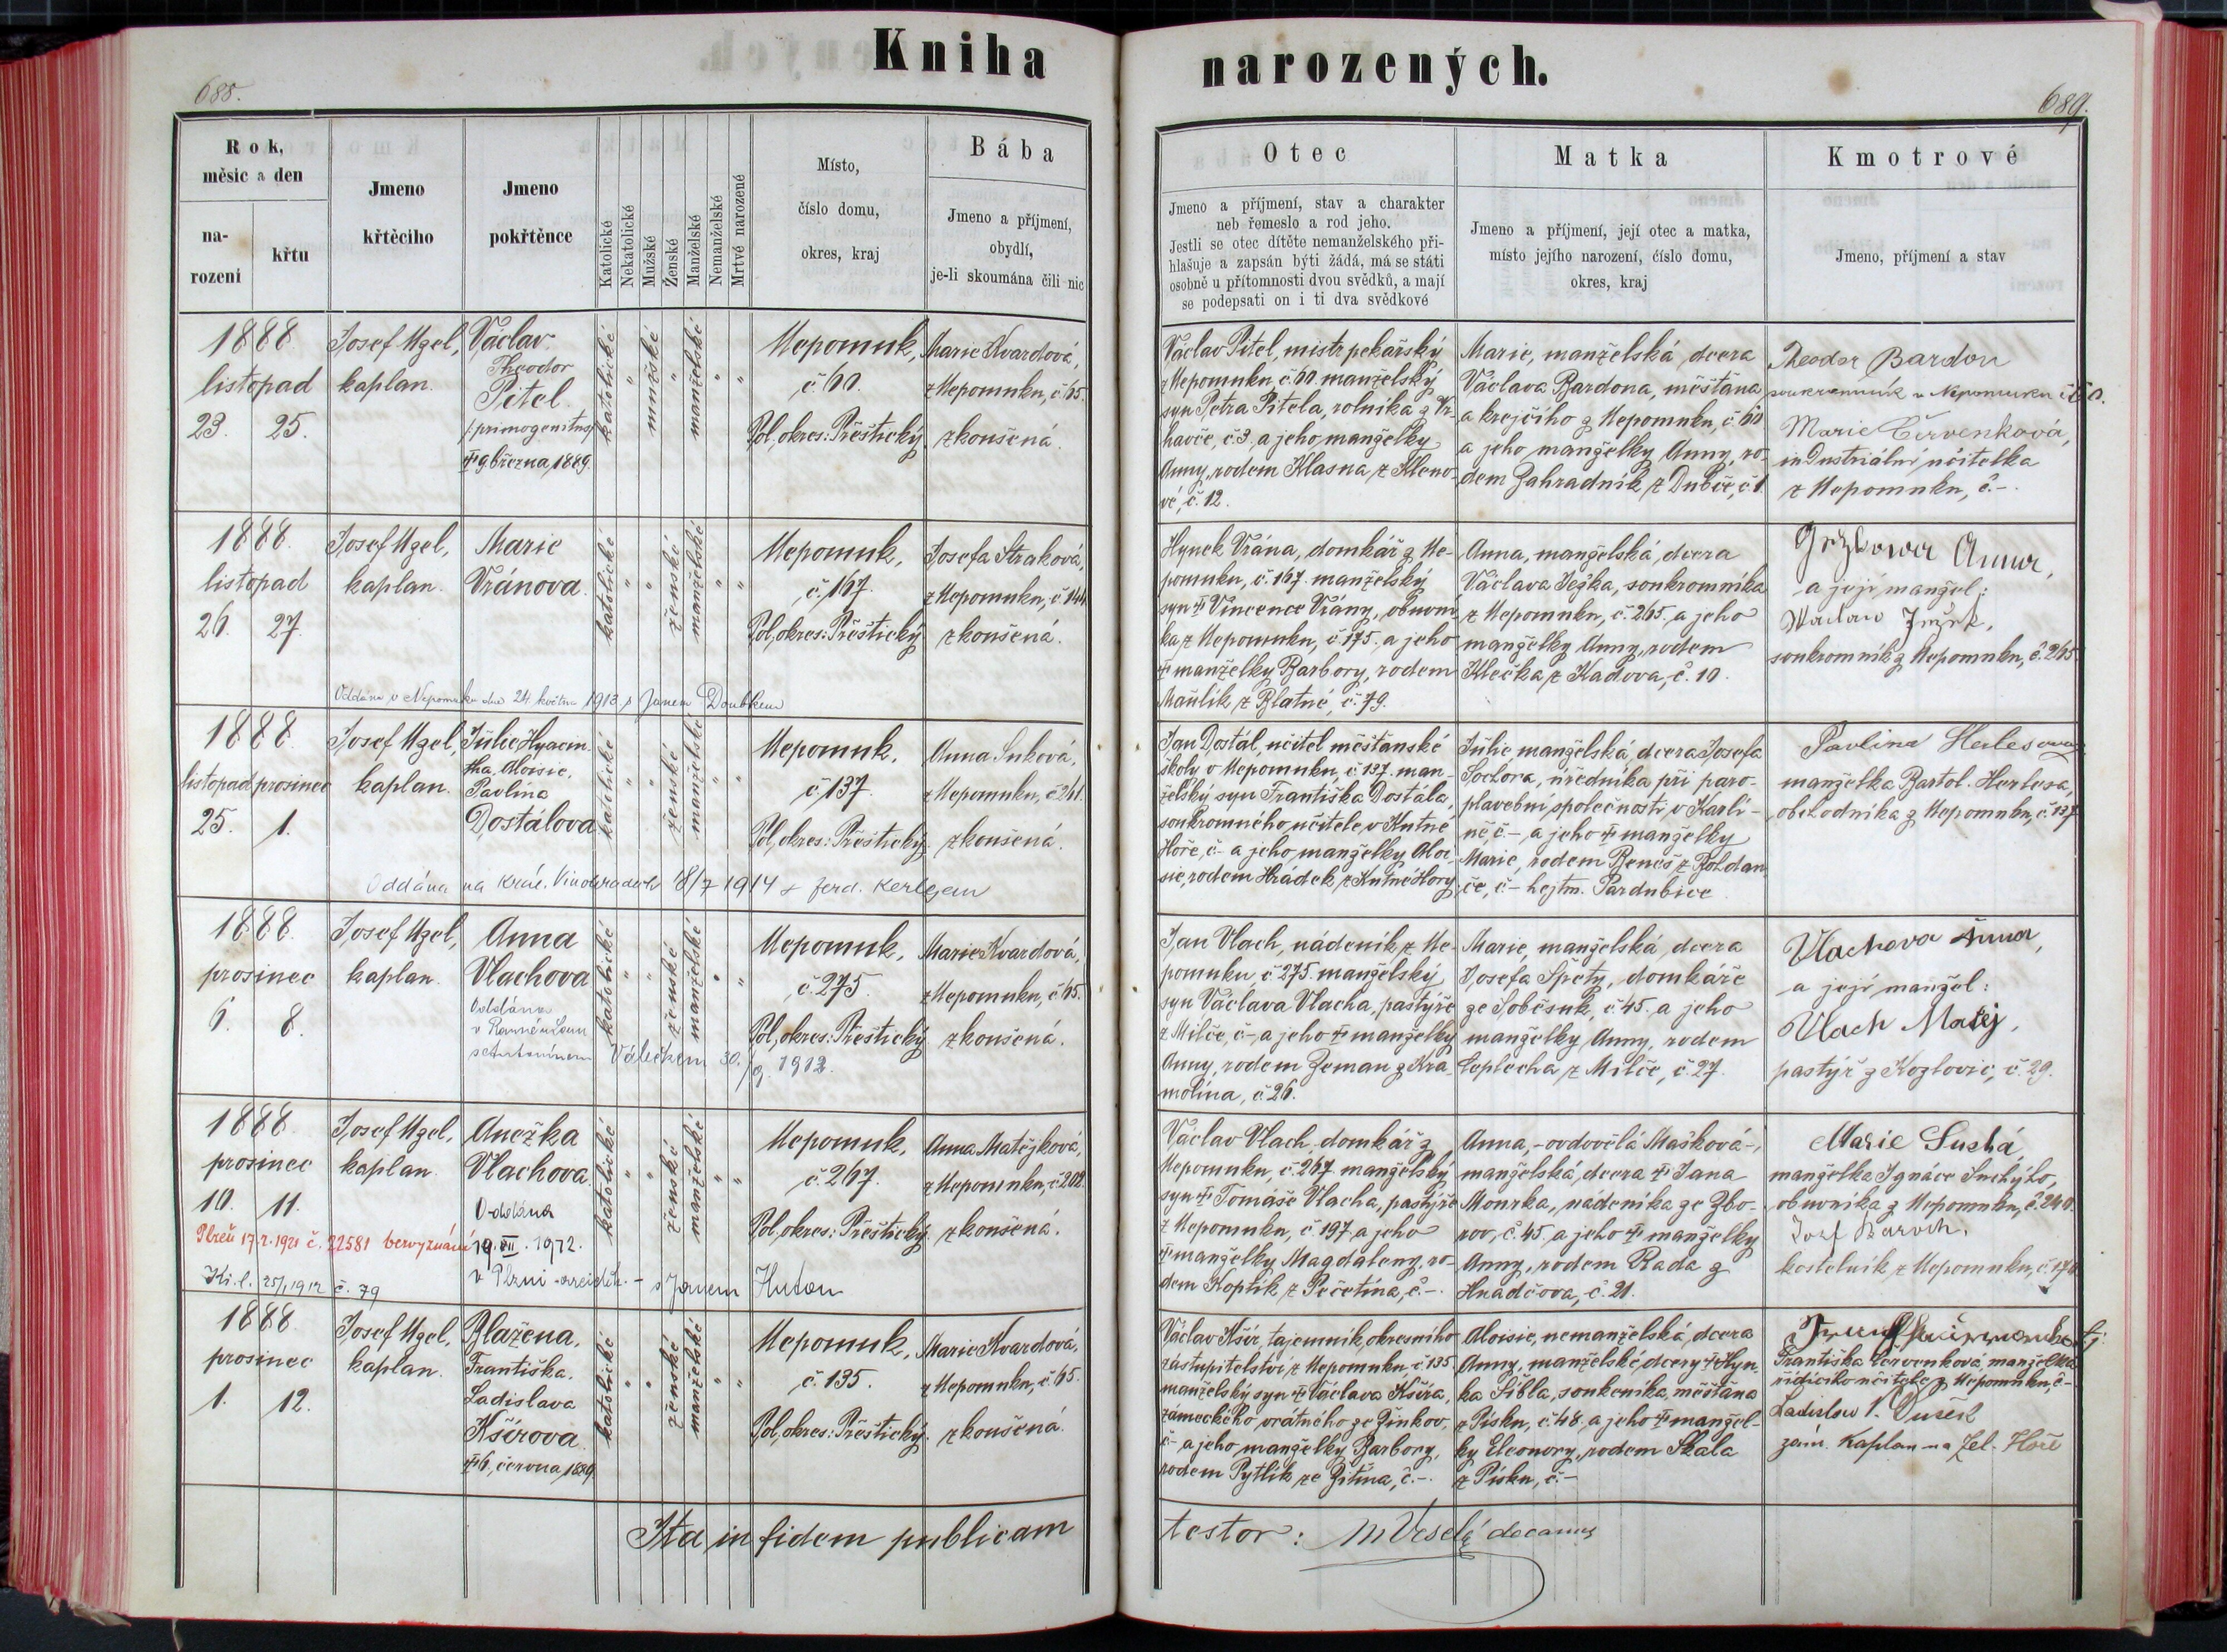 Kniha narozených.
688.
689.
Rok, měsíc a den
narození
křtu
Jmeno křtěcího
Jmeno pokřtěnce
Katolické
Nekatolické
Mužské
Ženské
Manželské
Nemanželské
Mrtvé narozené
Místo,
číslo domu,
okres, kraj
Bába
Jmeno a příjmení,
obydlí,
je-li skoumána čili nic
Otec
Jmeno a příjmení, stav a charakter
neb řemeslo a rod jeho.
Jestli se otec dítěte nemanželského při-
hlašuje a zapsán býti žádá, má se státi
osobně u přítomnosti dvou svědků, a mají
se podepsati on i ti dva svědkové
Matka
Jmeno a příjmení, její otec a matka,
místo jejího narození, číslo domu,
okres, kraj
Kmotrové
Jmeno, příjmení a stav
1888
listopad
23. 25.
Josef
kaplan.
Václav
Theodor
Pitel.
/:primogenitus/
† 9. března, 1889.
katolické " mužské " manželské " "
Nepomuk,
č. 60.
Pol. okres: Přeštický
Marie Kvardová,
z Nepomuku, č. 65.
zkoušená.
Václav Pitel, mistr pekařský
z Nepomuku, č. 60. manželský
syn Petra Pitela, rolníka z Vr-
havče, č. 3. a jeho manželky
Anny, rodem Klasna z Kleno-
vé, č. 12.
Marie, manželská dcera
Václava Bardona, měšťana
a krejčího z Nepomuku, č. 60
a jeho manželky Anny, ro-
dem Zahradník z Dubče, č. 1.
Theodor Bardon
soukromník v Nepomuku č. 60.
Marie Červenková,
industriální učitelka
z Nepomuku, č.-.
1888.
listopad
26. 27.
Josef
kaplan.
Marie
Vránova.
katolické " " ženské manželské " "
Nepomuk,
č. 167.
Pol. okres: Přeštický
Josefa Straková,
z Nepomuku, č. 144.
zkoušená.
Oddána v Nepomuku dne 24. května 1913 s Janem Doubkem
Hynek Vrána, domkář z Ne-
pomuku, č. 167. manželský
syn † Vincence Vrány, obuvní-
ka z Nepomuku, č. 175. a jeho
† manželky Barbory, rodem
Maulik z Blatné, č. 79.
Anna, manželská dcera
Václava Ježka, soukromníka
z Nepomuku, č. 265, a jeho
manželky Anny, rodem
Klečka z Kadova, č. 10.
Anna,
a její manžel:
soukromník z Nepomuku, č. 265.
1888.
listopad prosinec
25. 1.
Josef
kaplan.
Julie Hyacin-
tha, Aloisie,
Pavlína
Dostálova
katolické " " ženské manželské " "
Nepomuk,
č. 137.
Pol. okres: Přeštický
Anna Suková,
z Nepomuku, č. 261.
zkoušená.
Oddána na Král. Vinohradech 18/7 1914 s Ferd.
Jan Dostál, učitel měšťanské
školy v Nepomuku, č. 137. man-
želský syn Františka Dostála,
soukromného učitele v Kutné
Hoře, č.- a jeho manželky Aloi-
sie, rodem Hrádek z Kutné Hory
Julie, manželská dcera Josefa
Sochora, úředníka při paro-
plavební společnosti v Karlí-
ně, č.- a jeho † manželky
Marie, rodem Beneš z Boldan-
če, č.- hejtm. Pardubice
Pavlína Herlesova
manželka Bartol. Herlesa,
obchodníka z Nepomuku, č. 137.
1888.
prosinec
6. 8.
Josef
kaplan.
Anna
Vlachova
Oddána
v
s Antonínem Válečkem 30./9. 1912.
katolické " " ženské manželské " "
Nepomuk,
č. 275.
Pol. okres: Přeštický
Marie Kvardová,
z Nepomuku, č. 65.
zkoušená.
Jan Vlach, nádeník z Ne-
pomuku č. 275. manželský
syn Václava Vlacha, pastýře
z Milče, č.- a jeho † manželky
Anny, rodem Zeman z Kra-
molína, č. 26.
Marie, manželská dcera
Josefa Špety, domkáře
ze Soběsuk, č. 45. a jeho
manželky Anny, rodem
z Milče, č. 27.
Vlachova Anna,
a její manžel:
Vlach Matěj,
pastýř z Kozlovic, č. 29.
1888.
prosinec
10. 11.
Josef
kaplan.
Anežka
Vlachova.
Oddána
19. VII. 1912.
v Plzni - s Janem
Plzeň 17.2.1921 č. 22581 bezvyznání
25/1 1912 č. 79
katolické " " ženské manželské " "
Nepomuk,
č. 267.
Pol. okres: Přeštický
Anna Matějková,
z Nepomuku, č. 202.
zkoušená.
Václav Vlach, domkář z
Nepomuku, č. 267. manželský
syn † Tomáše Vlacha, pastýře
z Nepomuku, č. 197. a jeho
† manželky Magdaleny, ro-
dem Koptik z Pečetína, č.-.
Anna, - ovdovělá Mašková -,
manželská dcera † Jana
Mourka, nádeníka ze Zbo-
rov, č. 45. a jeho † manželky
Anny, rodem Rada z
Hradčova, č. 21.
Marie Suchá,
manželka Ignáce Suchýho,
obuvníka z Nepomuku, č. 240.
Josef
kostelník z Nepomuku, č. 170
1888.
prosinec
1. 12.
Josef
kaplan.
Blažena,
Františka,
Ladislava
Kšírova.
† 6. června, 1889.
katolické " " ženské manželské " "
Nepomuk,
č. 135.
Pol. okres: Přeštický
Marie Kvardová,
z Nepomuku, č. 65.
zkoušená.
Václav Kšír, tajemník okresního
zastupitelství z Nepomuku č. 135
manželský syn † Václava Kšíra,
zámeckého vrátného ze Žinkov,
č.- a jeho manželky Barbory,
rodem Pytlík ze Žitína, č.-.
Aloisie, nemanželská dcera
Anny, manželské dcery † Hyn-
ka Šibla, soukeníka, měšťana
z Písku, č. 48. a jeho † manžel-
ky Eleonory, rodem Skala
z Písku, č.-
Františka Červenková, manželka
řídícího učitele z Nepomuku, č.-
Ladislav Dušek
zám. kaplan na Zel. Hoře
Ita in fidem publicam
testor: M Veselý decanus